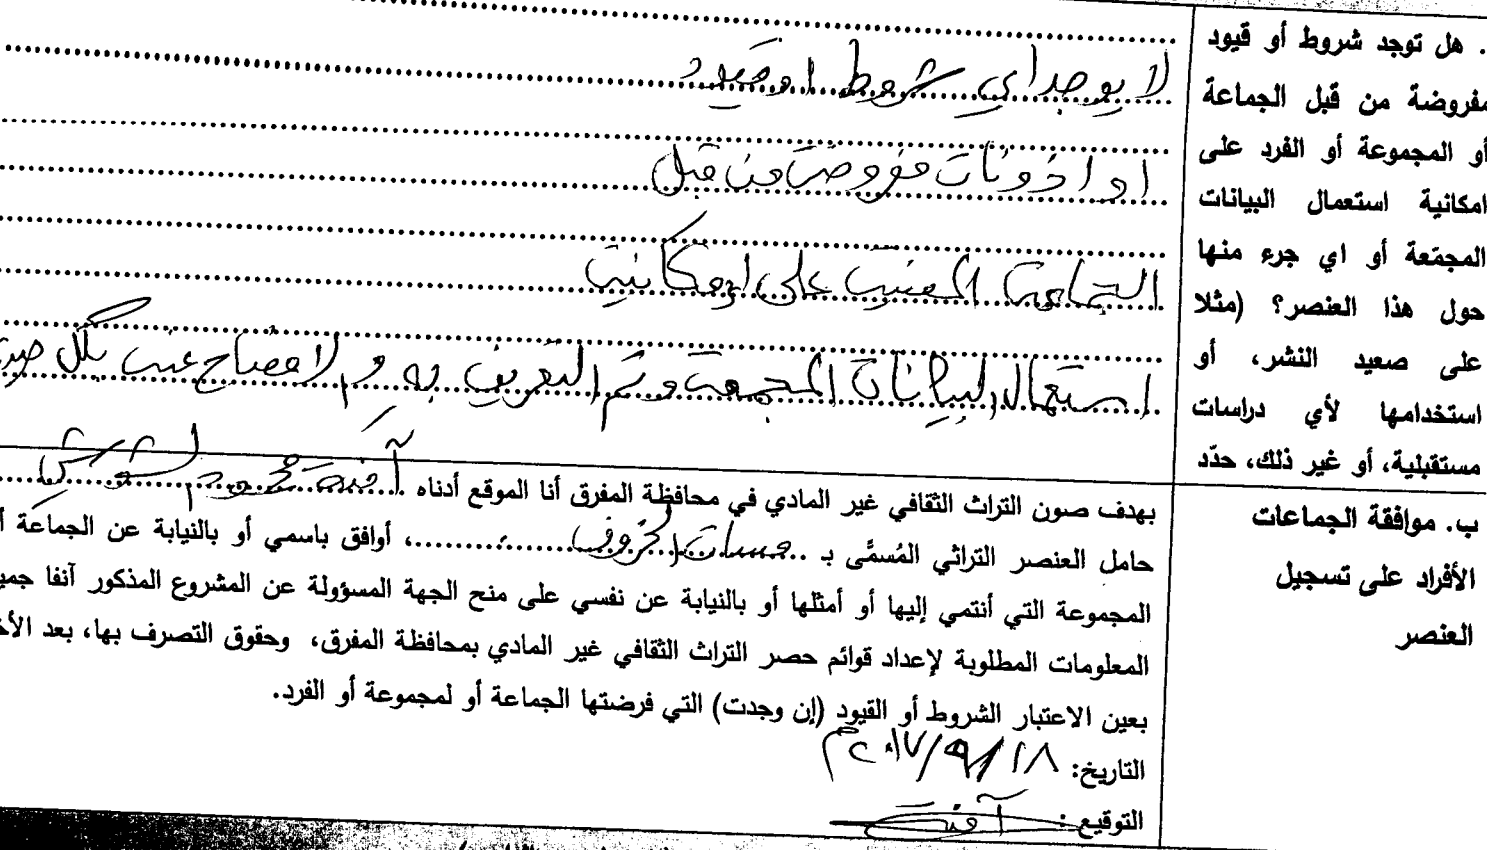 . هل توجد شروط أو قيود
مفروضة من قبل الجماعة
أو المجموعة أو الفرد على
امكانية استعمال البيانات
المجتعة أو اي جرء منها
حول هذا العنصر؟ (مثلا
على صعيد النشر، أو
استخدامها لأي دراسات
مستقبلية، أو غير ذلك، حدّد
لا يوجد اي شروط او قيود
او اذونات مفروضة من قبل
الجماعة المعنية على امكانية
استعمال البيانات المجمعة وتم التعريف به و الافصاح عنه بكل
ب. موافقة الجماعات
الأفراد على تسجيل
العنصر
بهدف صون التراث الثقافي غير المادي في محافظة المفرق أنا الموقع أدناه آمنة محمود
حامل العنصر التراثي المُسمَّى بـ الخروف، أوافق باسمي أو بالنيابة عن الجماعة
المجموعة التي أنتمي إليها أو أمثلها أو بالنيابة عن نفسي على منح الجهة المسؤولة عن المشروع المذكور آنفا
المعلومات المطلوبة لإعداد قوائم حصر التراث الثقافي غير المادي بمحافظة المفرق، وحقوق التصرف بها، بعد
بعين الاعتبار الشروط أو القيود (إن وجدت) التي فرضتها الجماعة أو لمجموعة أو الفرد.
التاريخ: ١٨/٩/٢٠١٧م
التوقيع: آمنة